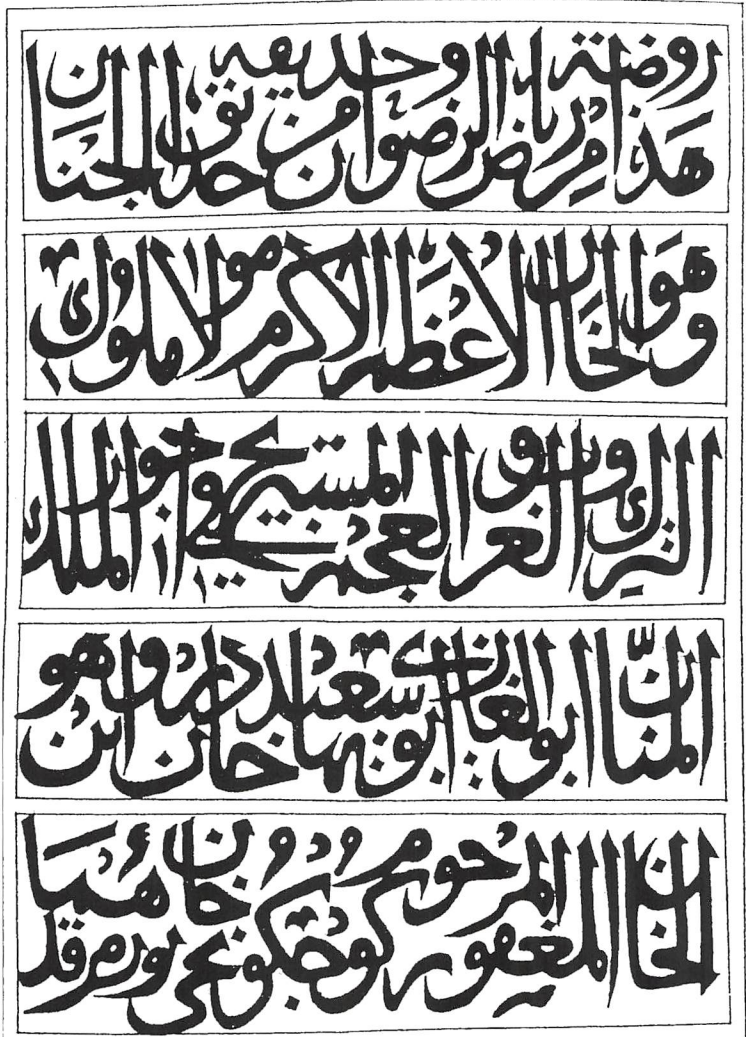 هذا روضة من رياض الرضوان وحديقة من حدائق الجنان
وهو الخان الاعظم الاكرم مولا ملوك
الترك والعرب والعجم المستريح في جوار الملك
المنّان ابو الغازي ابو سعيد بهادر خان وهو ابن
الخان المغفور المرحوم كوجكونجى خان نور مرقدهما